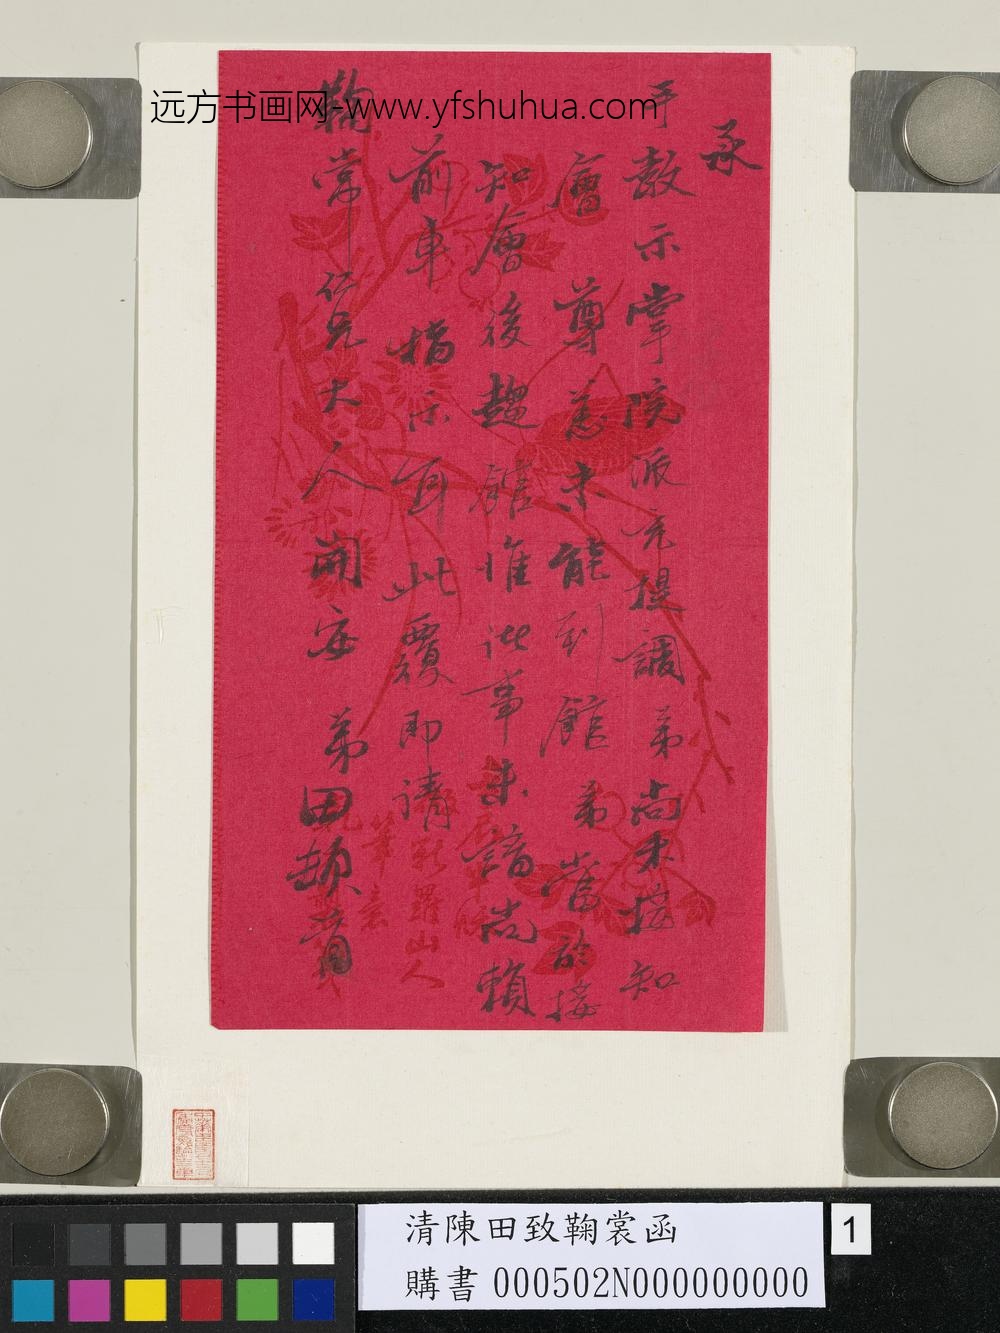 远方书画网-www.yfshuhua.com
承
手教示掌院派充提調弟尚未接知
會尊意未能到館弟當於接
知會後趨館惟此事未諳尚賴
前車指示耳此覆即請
鞠裳仁兄大人開安弟田頓首
新羅山人
筆意
清陳田致鞠裳函
購書 000502N000000000
1